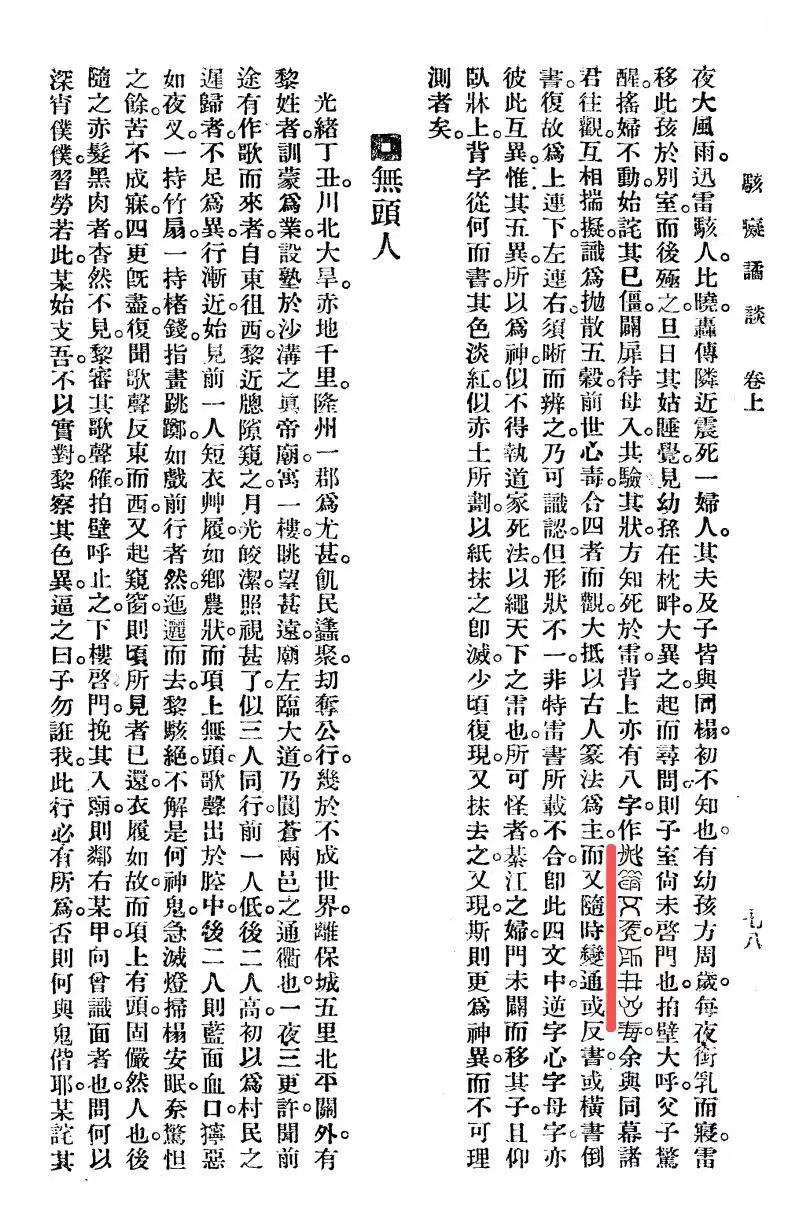 駭癡譎談 卷上 七八
夜大風雨。迅雷駭人。比曉。轟傳隣近震死一婦人。其夫及子皆與同榻。初不知也。有幼孩方周歲。每夜銜乳而寢。雷
移此孩於別室而後殛之。旦日其姑睡覺。見幼孫在枕畔。大異之。起而尋問。則子室尙未啓門也。拍壁大呼。父子驚
醒。搖婦不動。始詫其已僵。闢扉待母入。共驗其狀。方知死於雷。背上亦有八字。作 余與同幕諸
君往觀。互相揣擬。識爲拋散五穀。前世心毒。合四者而觀。大抵以古人篆法爲主。而又隨時變通。或反書。或橫書倒
書。復故爲上連下。左連右。須晰而辨之。乃可識認。但形狀不一。非特雷書所載不合。卽此四文中。逆字心字母字亦
彼此互異。惟其五異。所以爲神。似不得執道家死法。以繩天下之雷也。所可怪者。綦江之婦。門未闢而移其子。且仰
臥牀上。背字從何而書。其色淡紅。似赤土所劃。以紙抹之卽滅。少頃復現。又抹去之。又現。斯則更爲神異而不可理
測者矣。
無頭人
光緒丁丑。川北大旱。赤地千里。隆州一郡爲尤甚。飢民蠭聚。刧奪公行。幾於不成世界。離保城五里北平關外。有
黎姓者。訓蒙爲業。設塾於沙溝之眞帝廟。寓一樓。眺望甚遠。廟左臨大道。乃閬蒼兩邑之通衢也。一夜三更許。聞前
途有作歌而來者。自東徂西。黎近牕隙窺之。月光皎潔。照視甚了。似三人同行。前一人低。後二人高。初以爲村民之
遲歸者。不足爲異。行漸近。始見前一人短衣艸履。如鄕農狀。而項上無頭。歌聲出於腔中。後二人則藍面血口。獰惡
如夜叉。一持竹扇。一持楮錢。指畫跳躑。如戲前行者然。迤邐而去。黎駭絕。不解是何神鬼。急滅燈掃榻安眠。奈驚怛
之餘。苦不成寐。四更旣盡。復聞歌聲反東而西。又起窺窗。則頃所見者已還。衣履如故。而項上有頭。固儼然人也。後
隨之赤髮黑肉者。杳然不見。黎審其歌聲確。拍壁呼止之。下樓啓門。挽其入廟。則鄰右某甲。向曾識面者也。問何以
深宵僕僕。習勞若此。某始支吾。不以實對。黎察其色異。逼之曰。子勿誑我。此行必有所爲。否則何與鬼偕耶。某詫其